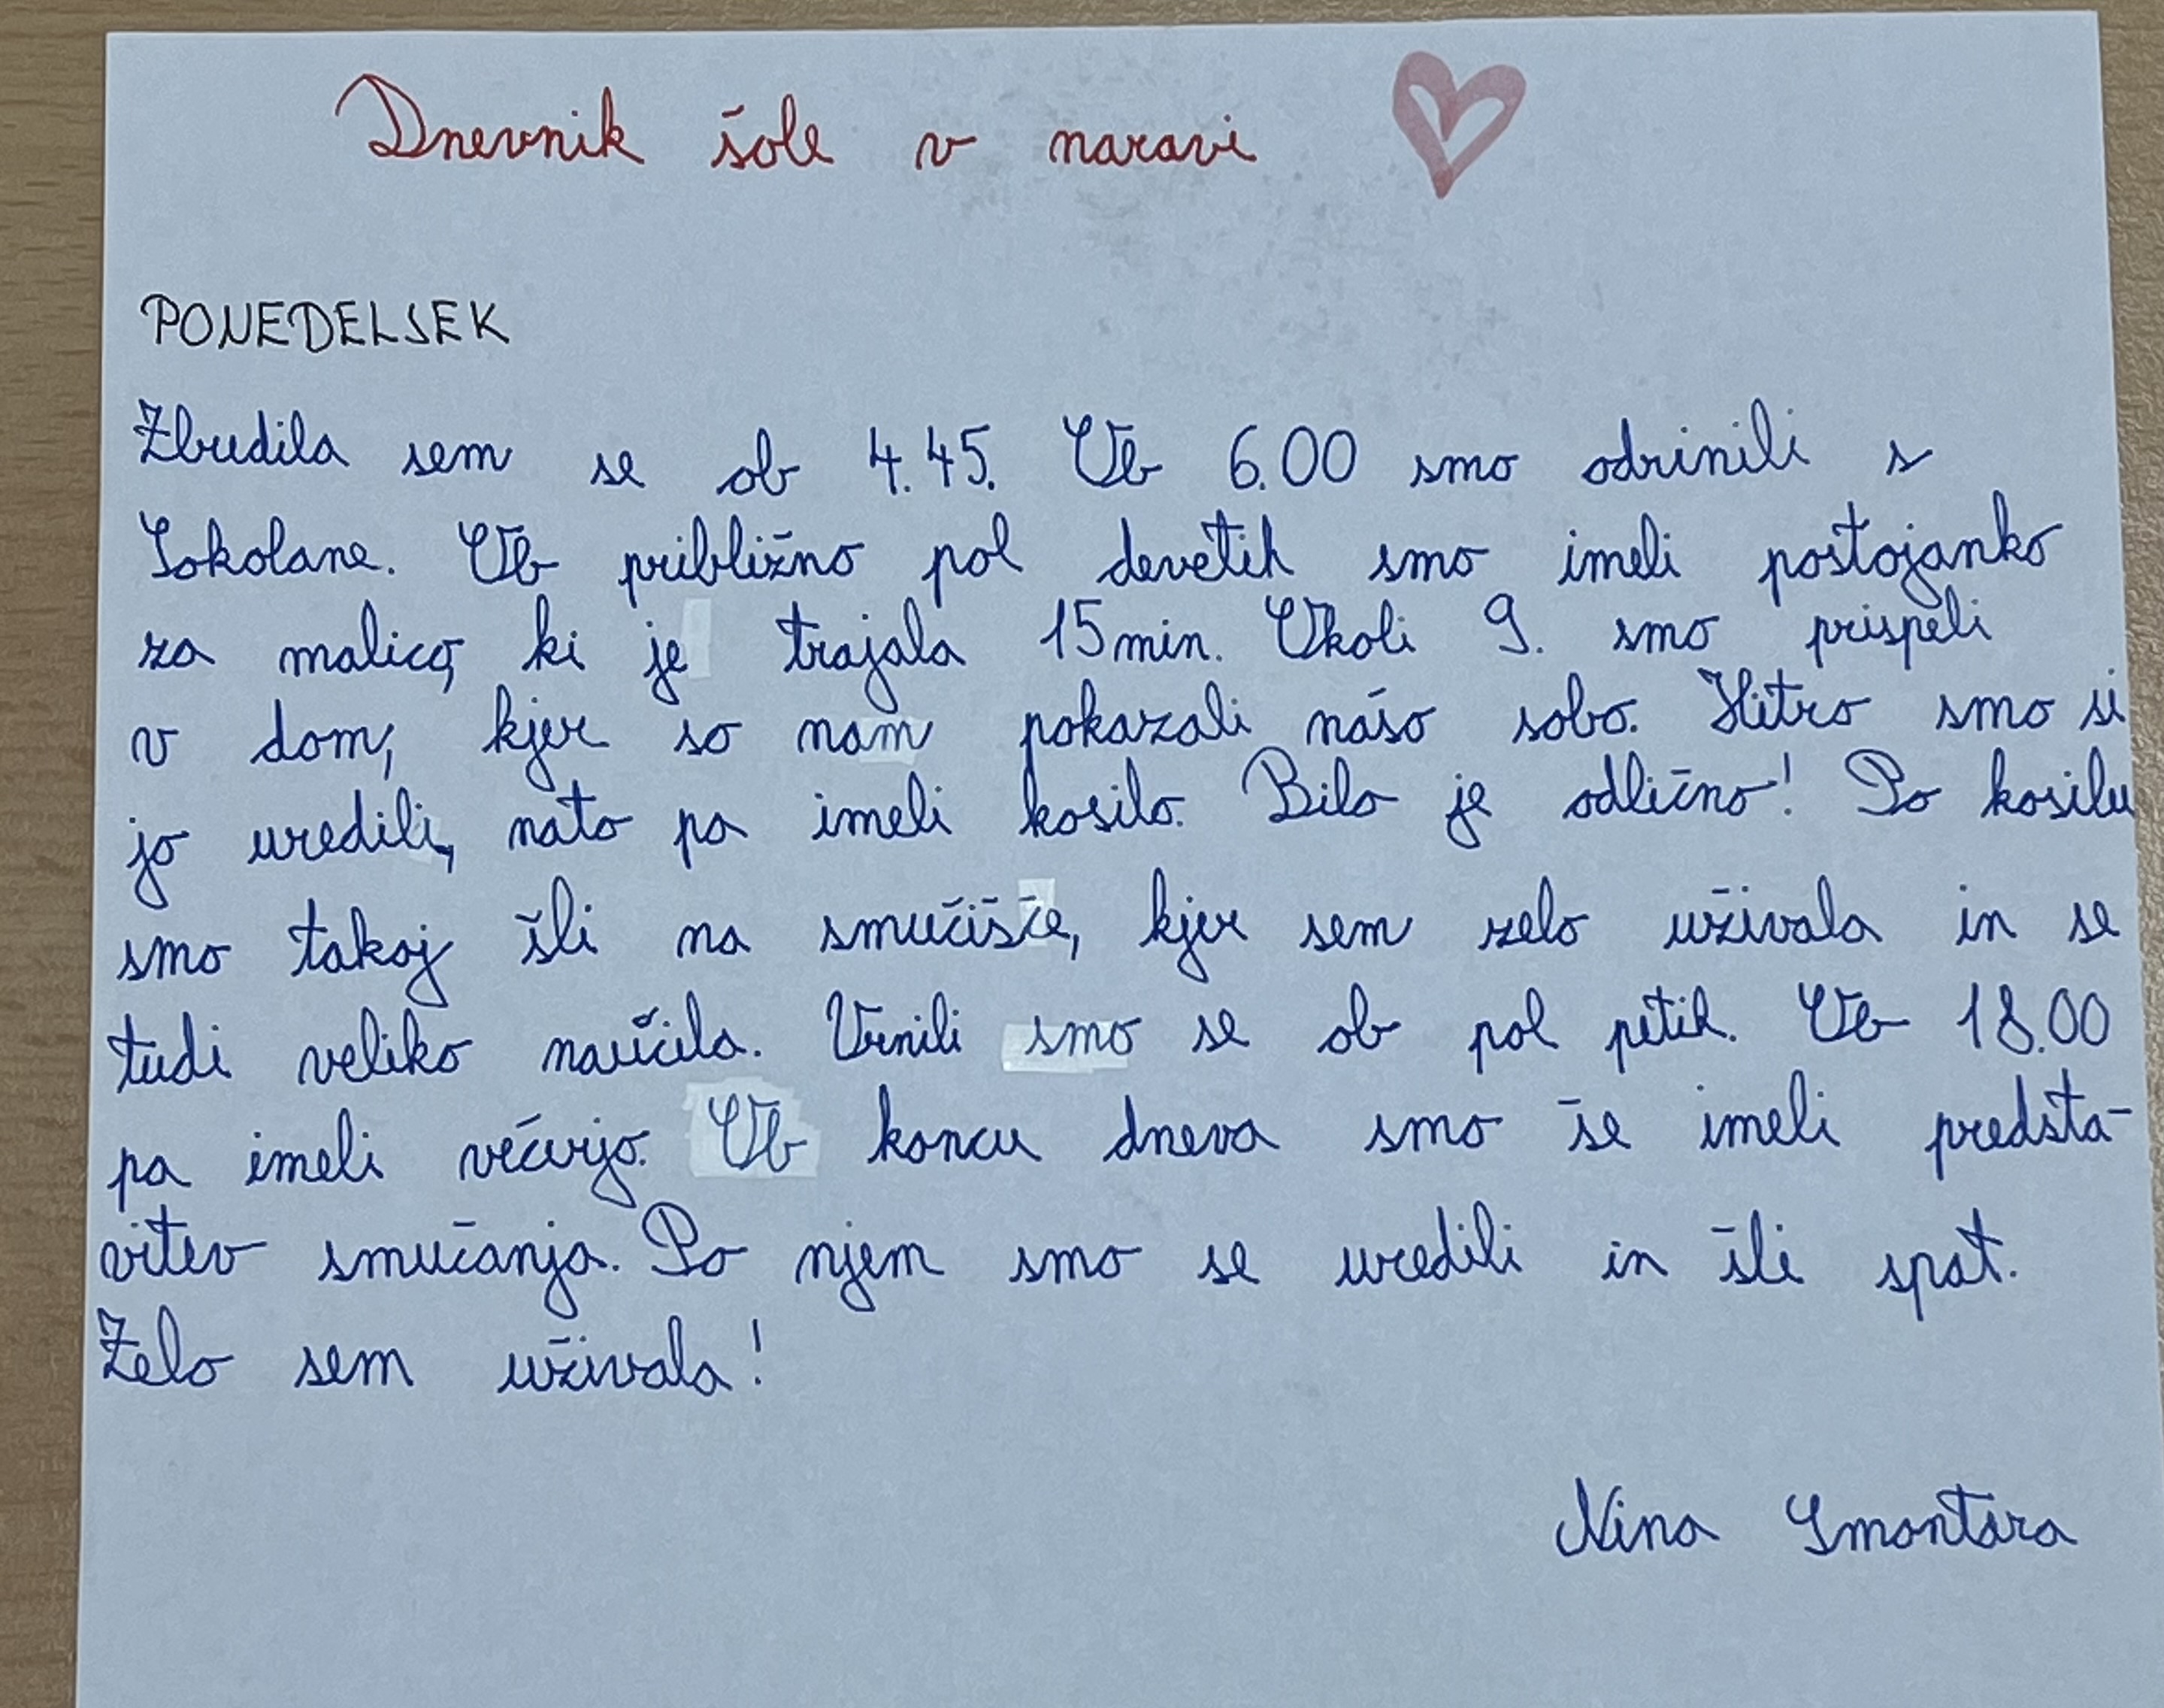 Dnevnik šole v naravi
PONEDELJEK
Zbudila sem se ob 4.45. Ob 6.00 smo odrinili s
Sokolane. Ob približno pol devetih smo imeli postojanko
za malico, ki je trajala 15min. Okoli 9. smo prispeli
v dom, kjer so nam pokazali našo sobo. Hitro smo si
jo uredili, nato pa imeli kosilo. Bilo je odlično! Po kosilu
smo takoj šli na smučišče, kjer sem zelo uživala in se
tudi veliko naučila. Vrnili smo se ob pol petih. Ob 18.00
pa imeli večerjo. Ob koncu dneva smo še imeli predsta-
vitev smučanja. Po njem smo se uredili in šli spat.
Zelo sem uživala!
Nina Smontara